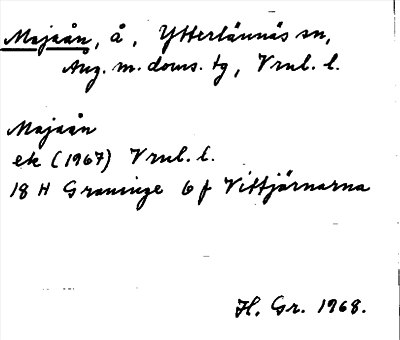 Majaån, å, Ytterlännäs sn,
Ång. m. doms. tg, Vrnl. l.
Majaån
ek (1967) Vrnl. l.
18 H Graninge 6 f Vittjärnarna
H. Gr. 1968.